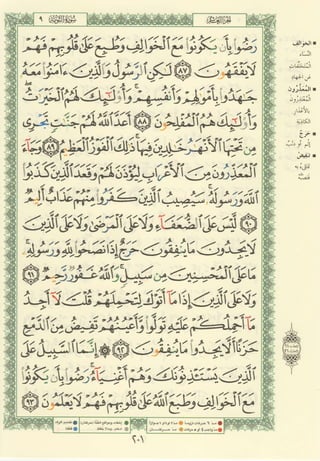 الجزء العاشر
سورة التوبة ٩
رَضُوا۟ بِأَن يَكُونُوا۟ مَعَ ٱلْخَوَالِفِ وَطُبِعَ عَلَىٰ قُلُوبِهِمْ فَهُمْ
لَا يَفْقَهُونَ ٨٧ لَـٰكِنِ ٱلرَّسُولُ وَٱلَّذِينَ ءَامَنُوا۟ مَعَهُۥ
جَـٰهَدُوا۟ بِأَمْوَٰلِهِمْ وَأَنفُسِهِمْ ۚ وَأُو۟لَـٰٓئِكَ لَهُمُ ٱلْخَيْرَٰتُ ۖ
وَأُو۟لَـٰٓئِكَ هُمُ ٱلْمُفْلِحُونَ ٨٨ أَعَدَّ ٱللَّهُ لَهُمْ جَنَّـٰتٍ تَجْرِى
مِن تَحْتِهَا ٱلْأَنْهَـٰرُ خَـٰلِدِينَ فِيهَا ۚ ذَٰلِكَ ٱلْفَوْزُ ٱلْعَظِيمُ ٨٩ وَجَآءَ
ٱلْمُعَذِّرُونَ مِنَ ٱلْأَعْرَابِ لِيُؤْذَنَ لَهُمْ وَقَعَدَ ٱلَّذِينَ كَذَبُوا۟
ٱللَّهَ وَرَسُولَهُۥ ۚ سَيُصِيبُ ٱلَّذِينَ كَفَرُوا۟ مِنْهُمْ عَذَابٌ أَلِيمٌ
٩٠ لَّيْسَ عَلَى ٱلضُّعَفَآءِ وَلَا عَلَى ٱلْمَرْضَىٰ وَلَا عَلَى ٱلَّذِينَ
لَا يَجِدُونَ مَا يُنفِقُونَ حَرَجٌ إِذَا نَصَحُوا۟ لِلَّهِ وَرَسُولِهِۦ ۚ
مَا عَلَى ٱلْمُحْسِنِينَ مِن سَبِيلٍ ۚ وَٱللَّهُ غَفُورٌ رَّحِيمٌ ٩١
وَلَا عَلَى ٱلَّذِينَ إِذَا مَآ أَتَوْكَ لِتَحْمِلَهُمْ قُلْتَ لَآ أَجِدُ
مَآ أَحْمِلُكُمْ عَلَيْهِ تَوَلَّوا۟ وَّأَعْيُنُهُمْ تَفِيضُ مِنَ ٱلدَّمْعِ
حَزَنًا أَلَّا يَجِدُوا۟ مَا يُنفِقُونَ ٩٢ ۞ إِنَّمَا ٱلسَّبِيلُ عَلَى
ٱلَّذِينَ يَسْتَـْٔذِنُونَكَ وَهُمْ أَغْنِيَآءُ ۚ رَضُوا۟ بِأَن يَكُونُوا۟
مَعَ ٱلْخَوَالِفِ وَطَبَعَ ٱللَّهُ عَلَىٰ قُلُوبِهِمْ فَهُمْ لَا يَعْلَمُونَ ٩٣
٢٠١
الخوالف
النساء
المتخلفات
عن الجهاد
المعذرون
المعتذرون
بالأعذار
الكاذبة
حرج
إثم أو ذنب
تفيض